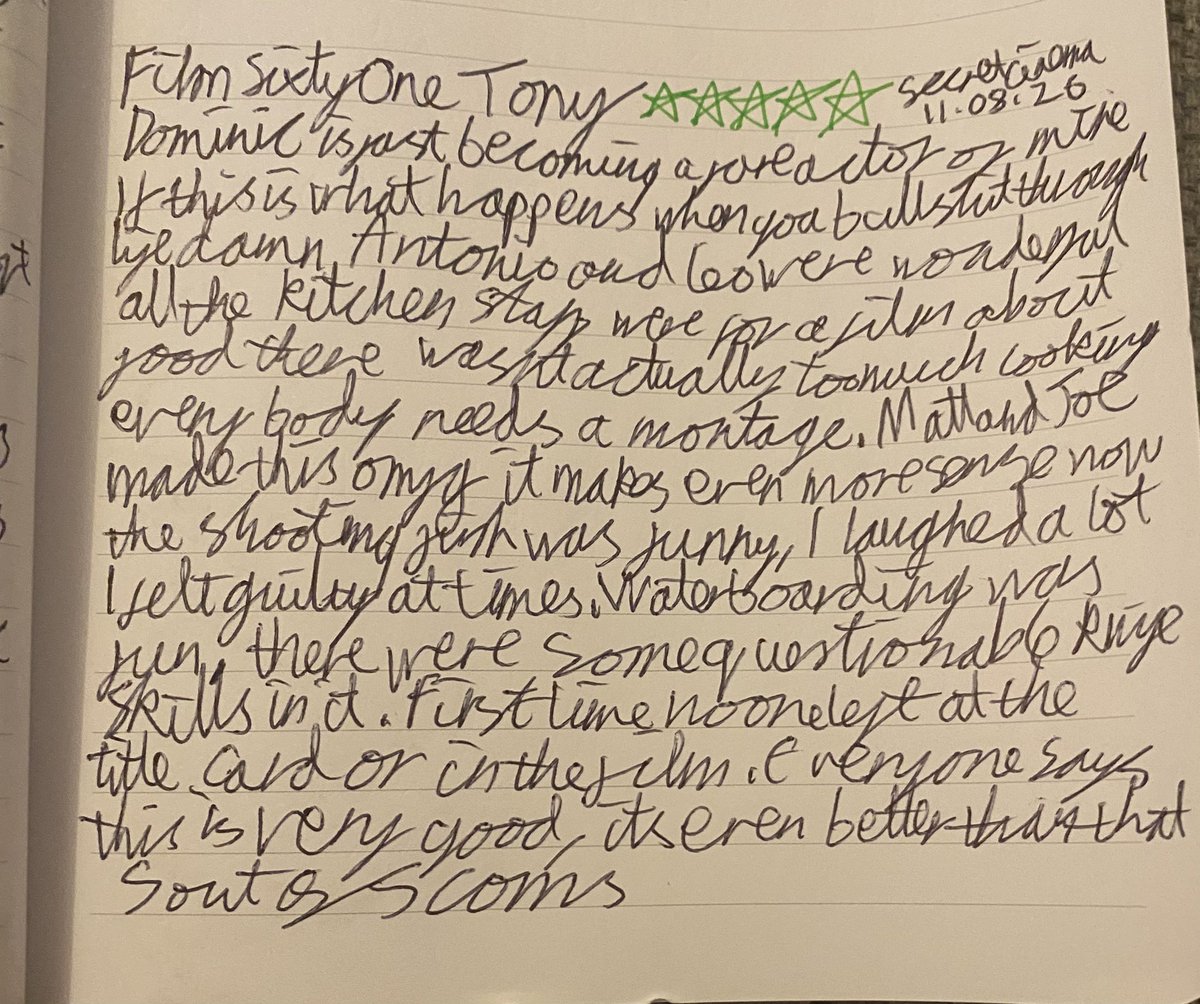 Film Sixty One Tony secret cinema
11.08.26
Dominic is just becoming a fore actor of mine
If this is what happens when you bullshit through
life damn. Antonio and Leo were wonderful
all the kitchen staff were for a film about
food there wasn't actually too much cooking
every body needs a montage. Matt and Joe
made this omfg it makes even more sense now
the shooting fish was funny, I laughed a lot
I felt guilty at times. Waterboarding was
fun, there were some questionable knife
skills in it. First time no one left at the
title card or in the film. Everyone says
this is very good, its even better than that
Sout of Scoms